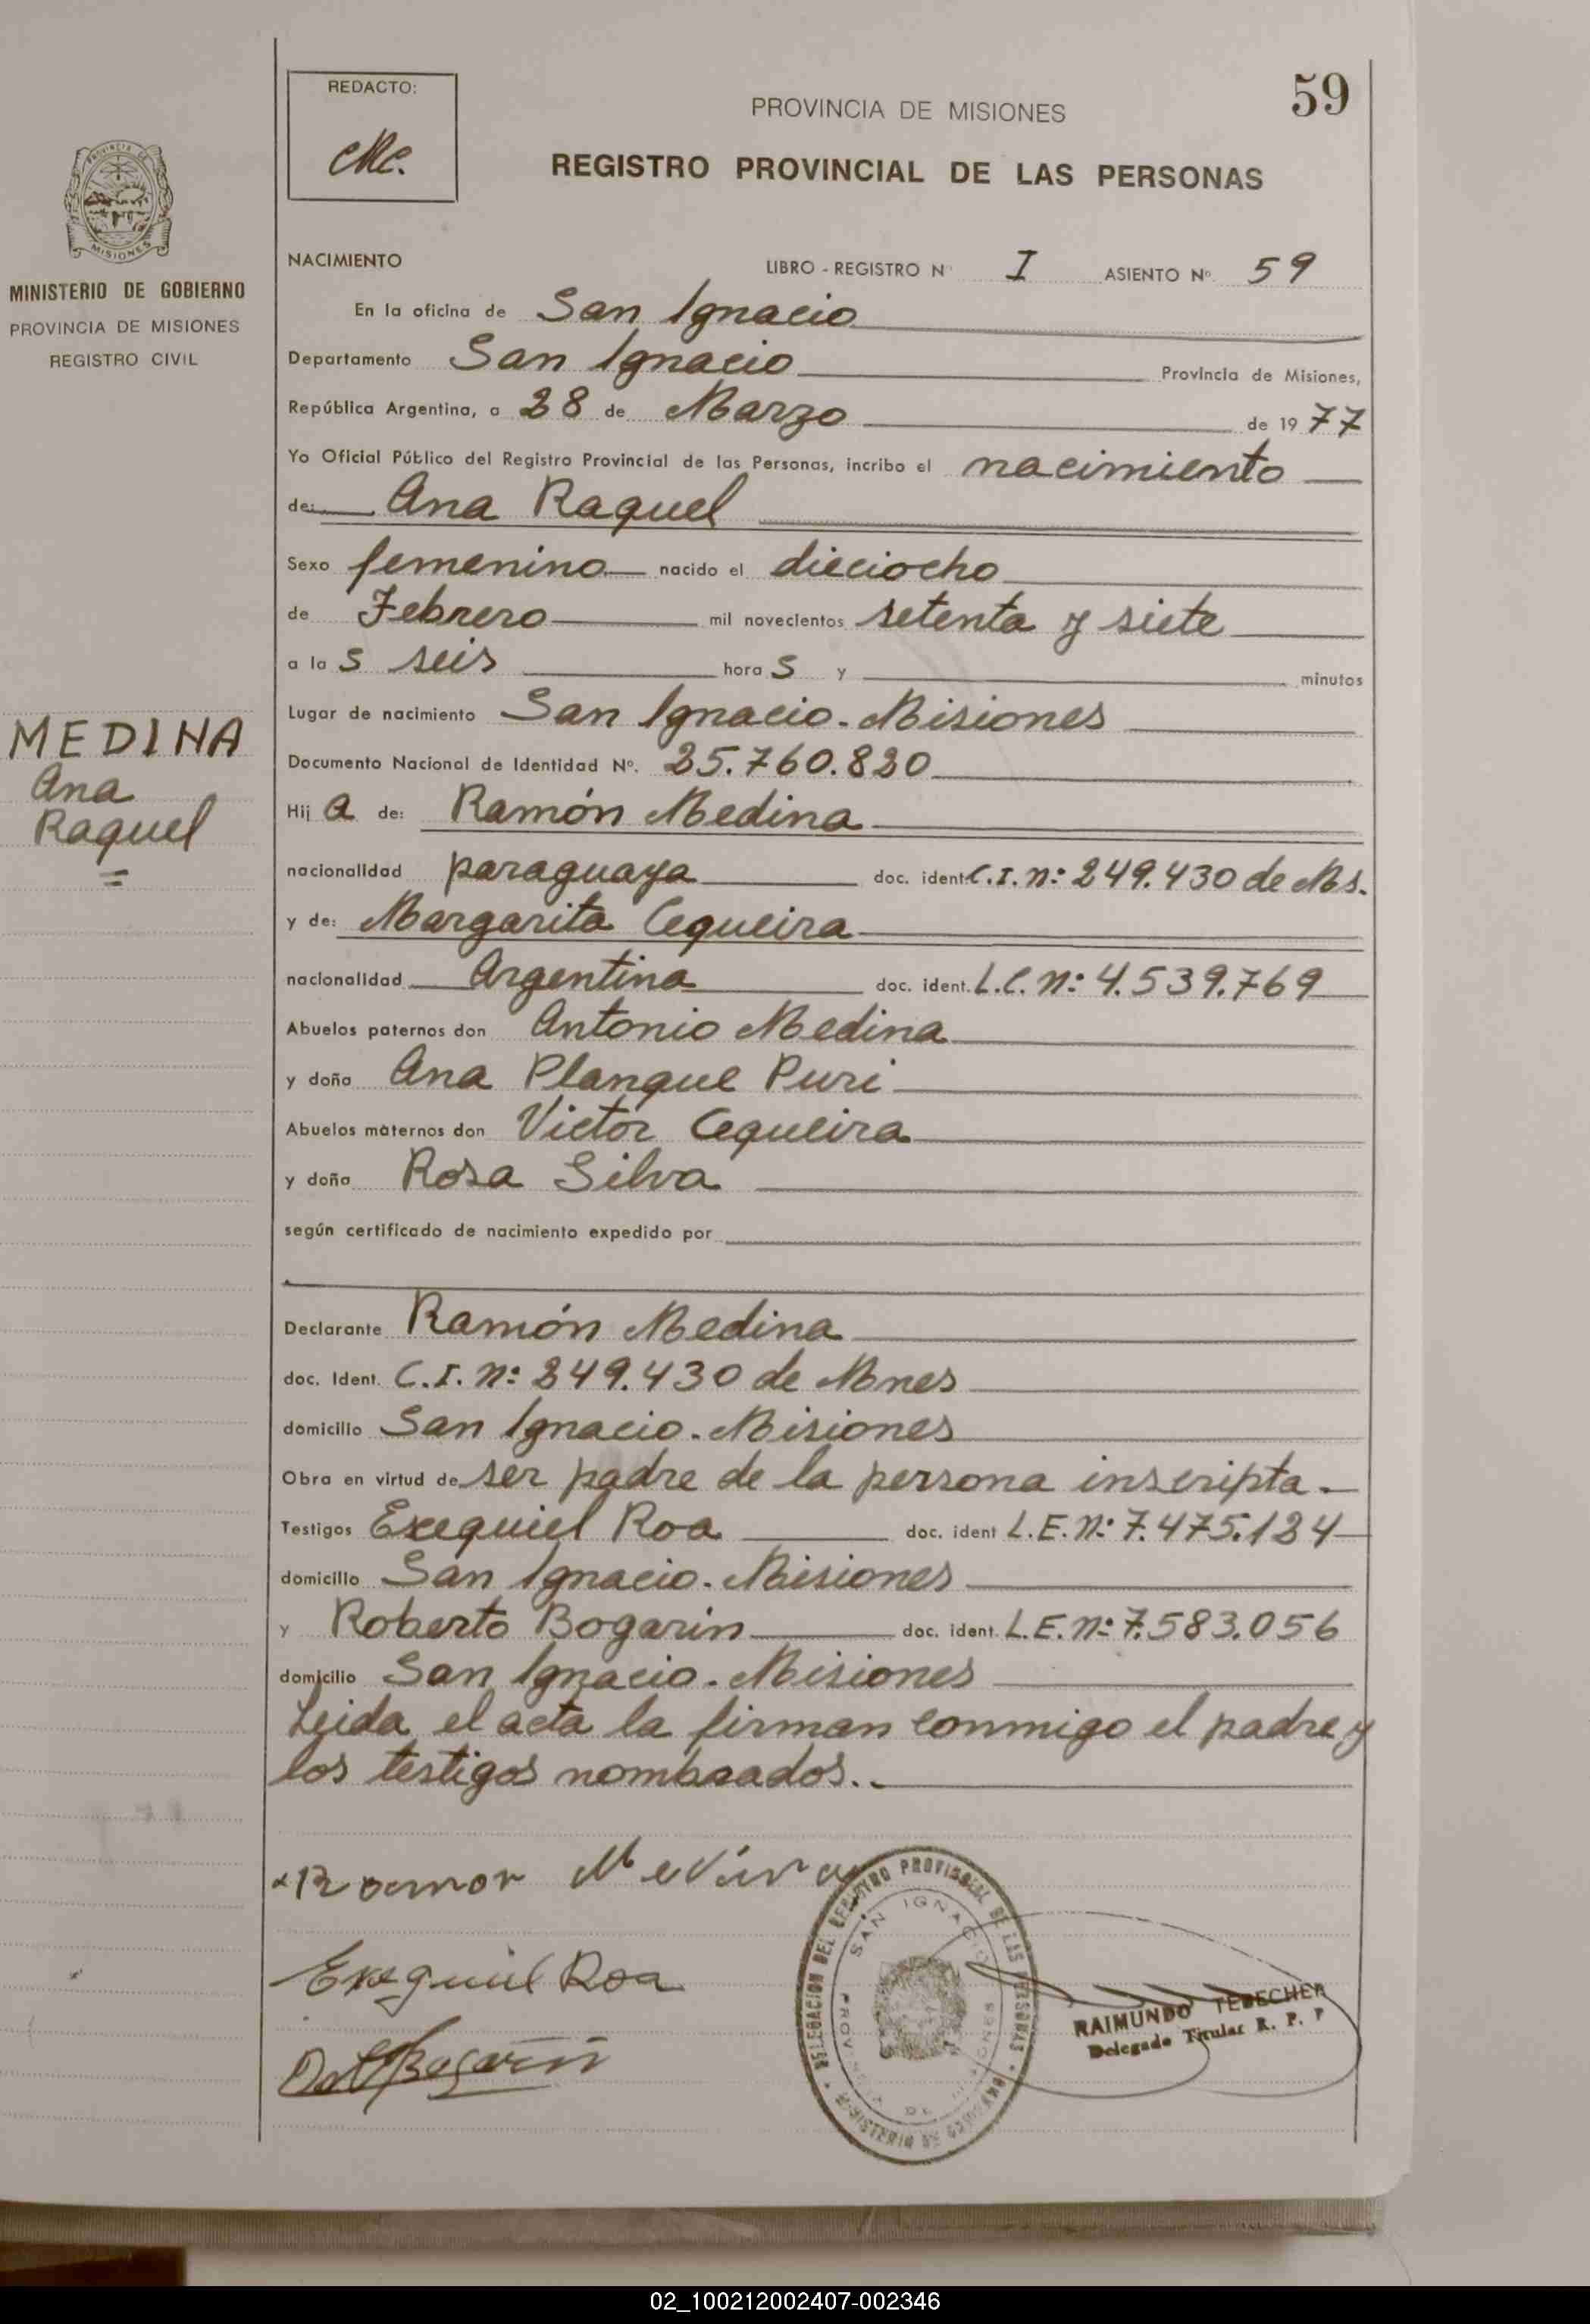 59
REDACTO:
PROVINCIA DE MISIONES
REGISTRO PROVINCIAL DE LAS PERSONAS
MISIONES
MINISTERIO DE GOBIERNO
PROVINCIA DE MISIONES
REGISTRO CIVIL
MEDINA
Ana
Raquel
NACIMIENTO LIBRO - REGISTRO Nº I ASIENTO Nº 59
En la oficina de San Ignacio
Departamento San Ignacio Provincia de Misiones,
República Argentina, a 28 de Marzo de 1977
Yo Oficial Público del Registro Provincial de las Personas, incribo el nacimiento
de: Ana Raquel
Sexo femenino nacido el dieciocho
de Febrero mil novecientos setenta y siete
a las seis horas y minutos
Lugar de nacimiento San Ignacio - Misiones
Documento Nacional de Identidad Nº. 25.760.820
Hija de: Ramón Medina
nacionalidad paraguaya doc. ident. C.I. nº: 249.430 de Ms.
y de: Margarita Cequeira
nacionalidad Argentina doc. ident. L.C. nº: 4.539.769
Abuelos paternos don Antonio Medina
y doña Ana Planque Puri
Abuelos maternos don Victor Cequeira
y doña Rosa Silva
según certificado de nacimiento expedido por
Declarante Ramón Medina
doc. Ident. C.I. nº: 249.430 de Mnes
domicilio San Ignacio - Misiones
Obra en virtud de ser padre de la persona inscripta.
Testigos Exequiel Roa doc. ident L.E. nº: 7.475.124
domicilio San Ignacio - Misiones
y Roberto Bogarin doc. ident. L.E. nº: 7.583.056
domicilio San Ignacio - Misiones
Leida el acta la firman conmigo el padre y
los testigos nombrados..
Ramon Medina
Exequiel Roa
Bogarin
DELEGACION DEL REGISTRO PROVINCIAL DE LAS PERSONAS
SAN IGNACIO
PROVINCIA DE MISIONES
MINISTERIO DE GOBIERNO
RAIMUNDO TEBECHER
Delegado Titular R. P. P
02_100212002407-002346